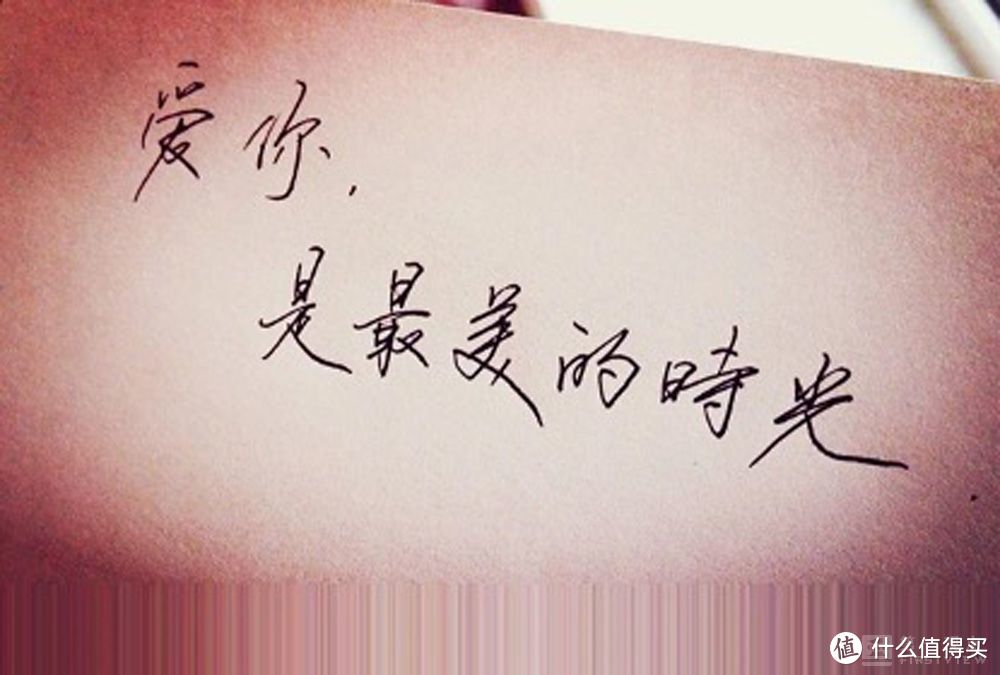 爱你,
是最美的時光
值 什么值得买
FIRSTVIEW